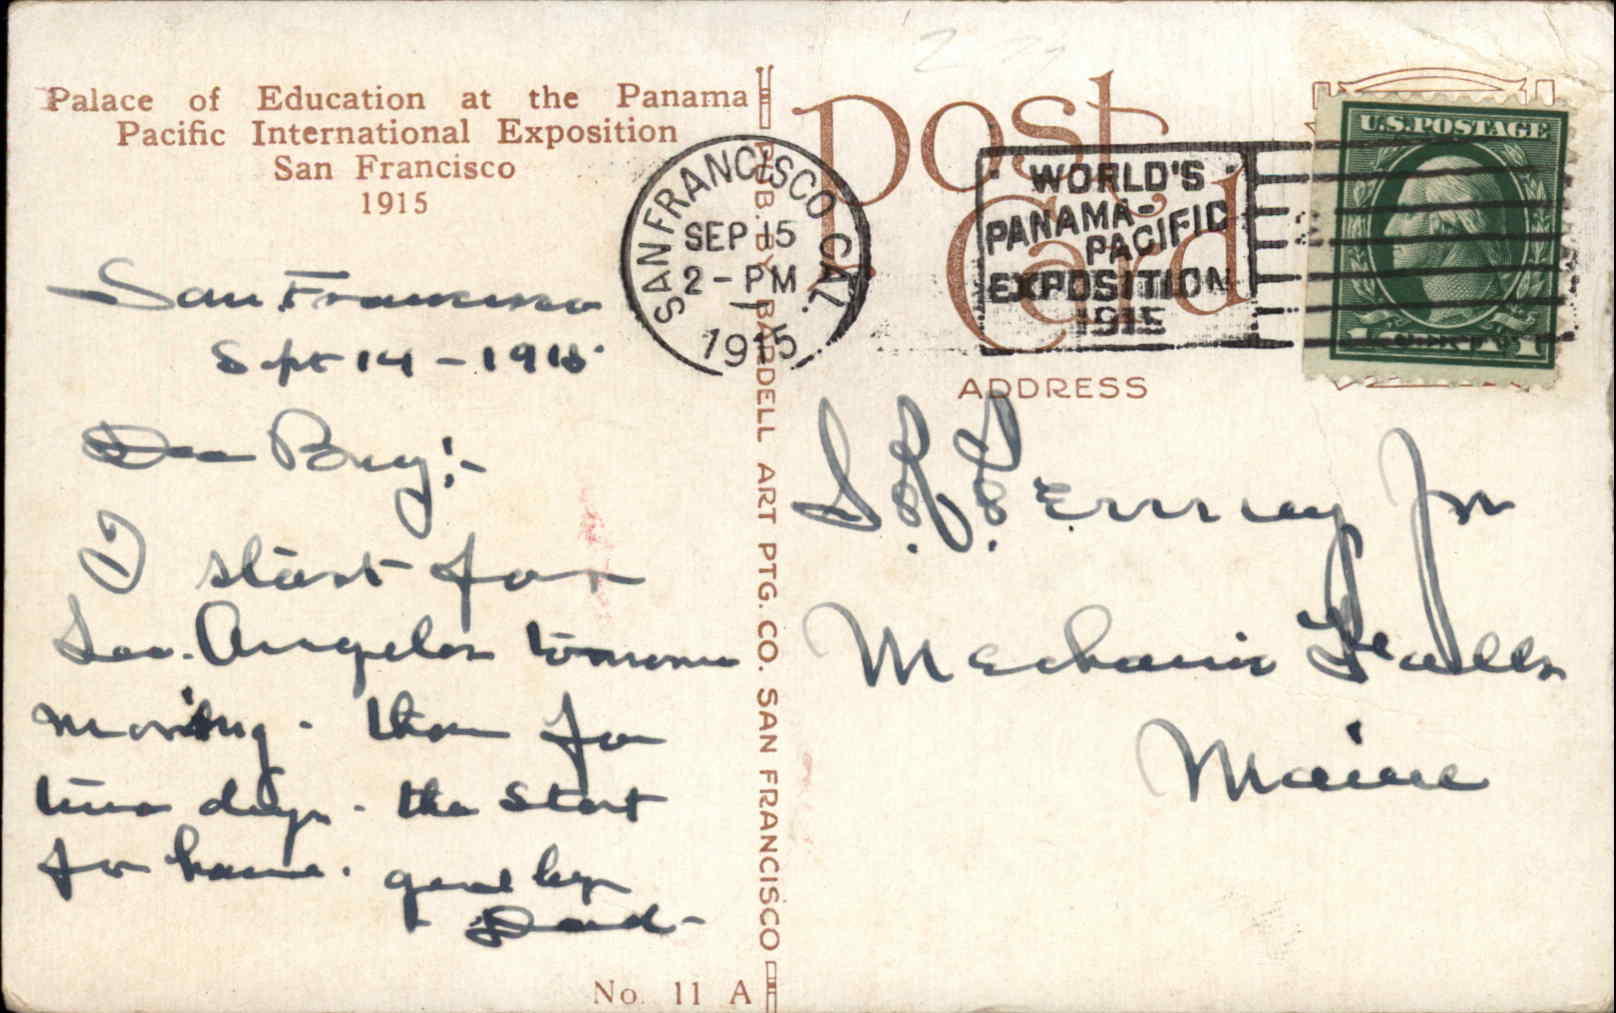 Palace of Education at the Panama
Pacific International Exposition
San Francisco
1915
San Francisco
Sept 14 - 1915
Dear Boy:-
I start for
Los Angeles tomorrow
morning - then for
two days - the start
for home. good by
Dad -
No. 11 A
PUB. BY BARDELL ART PTG. CO. SAN FRANCISCO
SAN FRANCISCO CAL.
SEP 15
2 - PM
1915
WORLD'S
PANAMA-
PACIFIC
EXPOSITION
1915
Post
Card
U.S. POSTAGE
ADDRESS
Jr
Mechanic Falls
Maine